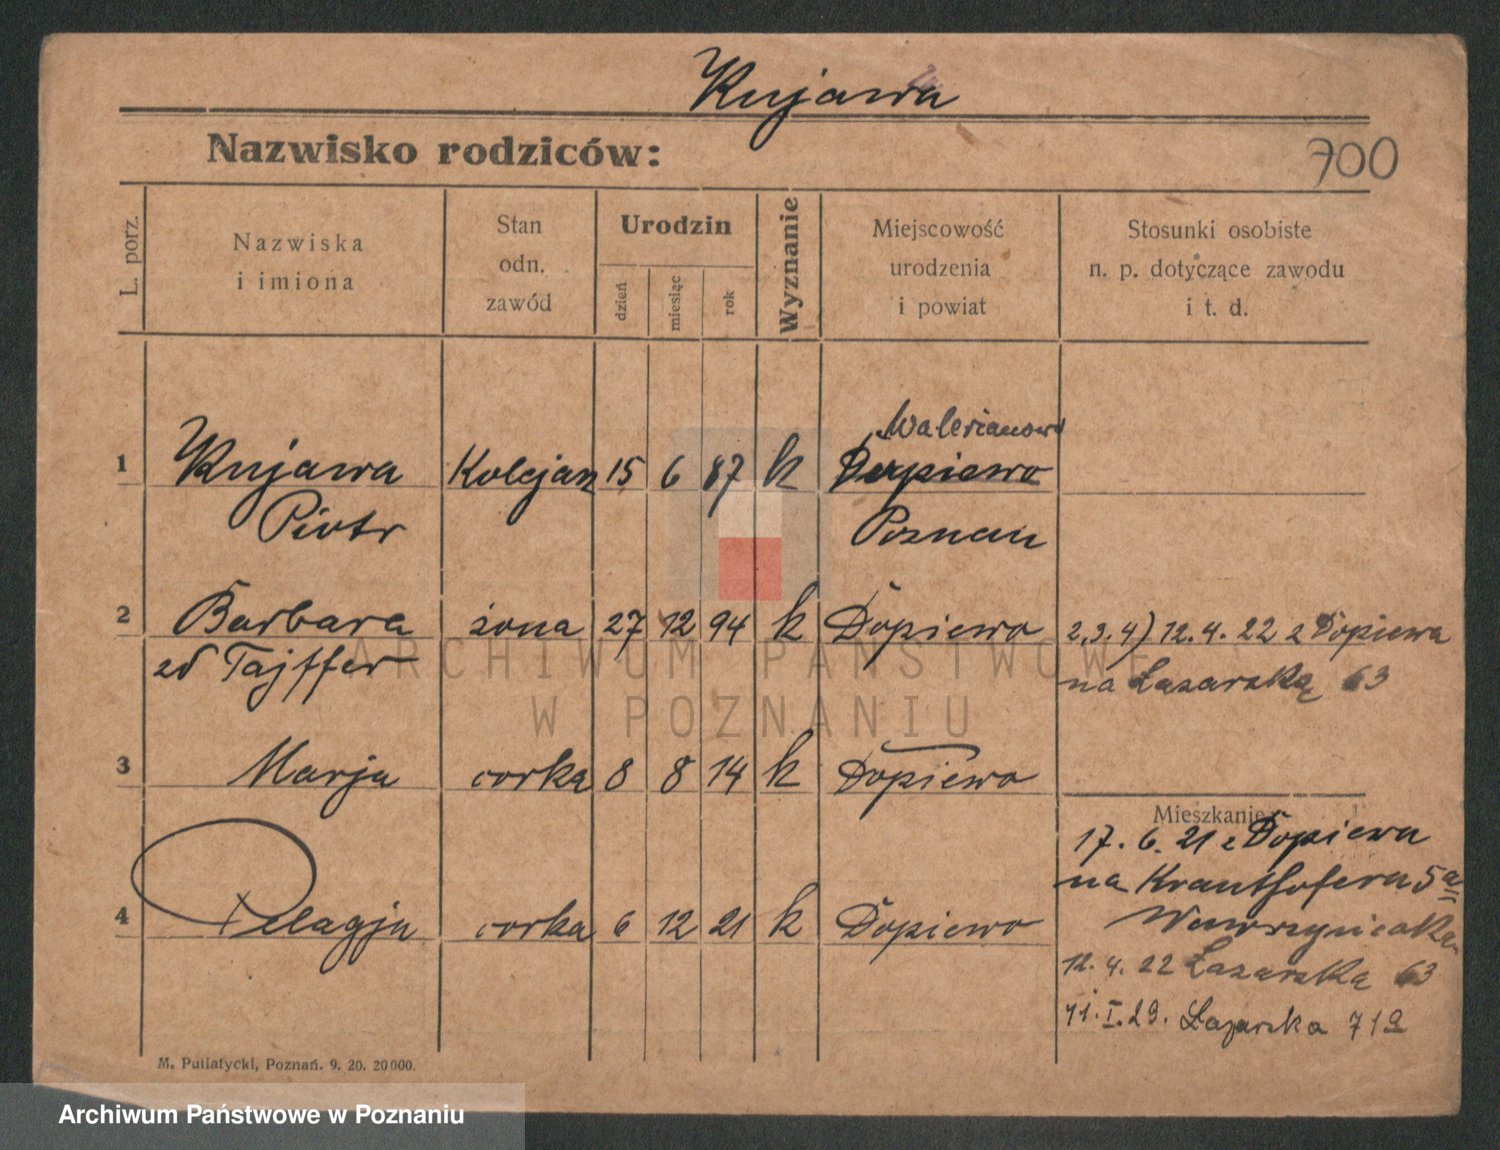 Kujawa
Nazwisko rodziców:
700
L. porz.
Nazwiska
i imiona
Stan
odn.
zawód
Urodzin
dzień
miesiąc
rok
Wyznanie
Miejscowość
urodzenia
i powiat
Stosunki osobiste
n. p. dotyczące zawodu
i t. d.
Walerianowo
1 Kujawa Kolejarz 15 6 87 k Dopiewo
Piotr Poznan
2 Barbara żona 27 12 94 k Dopiewo 2,3,4) 12.4.22 z Dopiewa
zd Tajffer na Łazarską 63
3 Marja corka 8 8 14 k Dopiewo
Mieszkanie
17.6.21 z Dopiewa
na Krauthofera 5a
4 Pelagja corka 6 12 21 k Dopiewo
12.4.22 Łazarska 63
11.I.29. Łazarska 71a
M. Putiatycki, Poznań. 9. 20. 20000.
ARCHIWUM PAŃSTWOWE
W POZNANIU
Archiwum Państwowe w Poznaniu